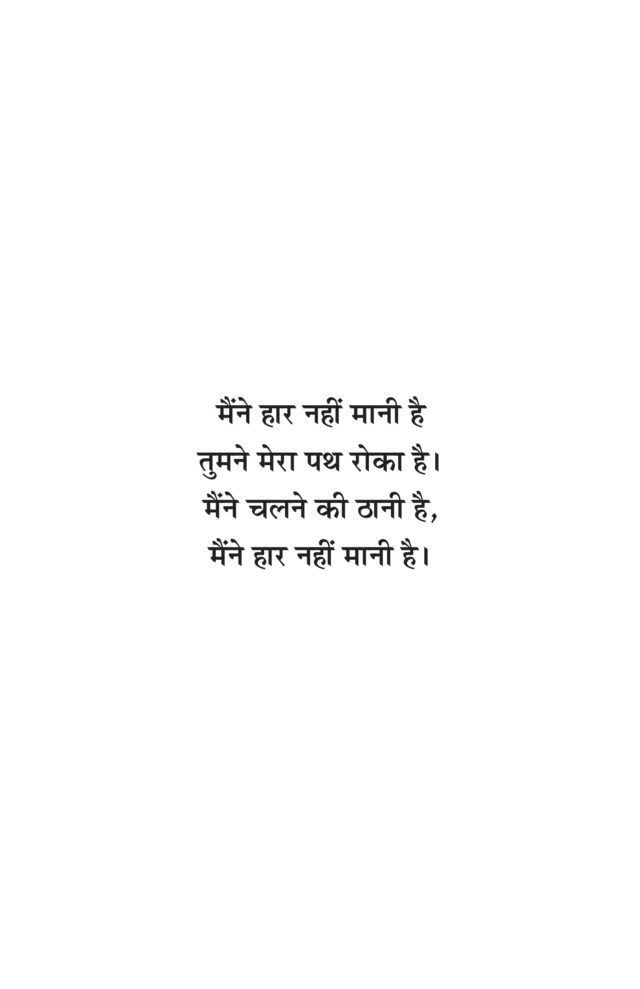 मैंने हार नहीं मानी है
तुमने मेरा पथ रोका है।
मैंने चलने की ठानी है,
मैंने हार नहीं मानी है।